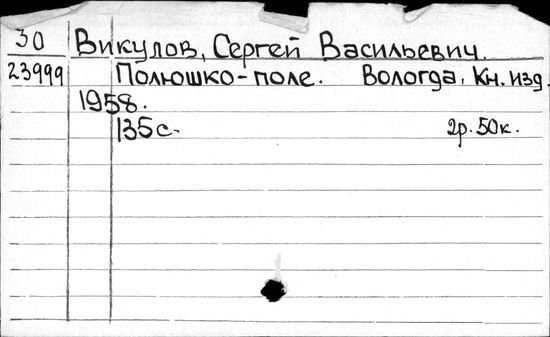 30 Викулов, Сергей Васильевич.
23999 Полюшко-поле. Вологда, Кн. изд.
1958.
135с. 2р. 50к.